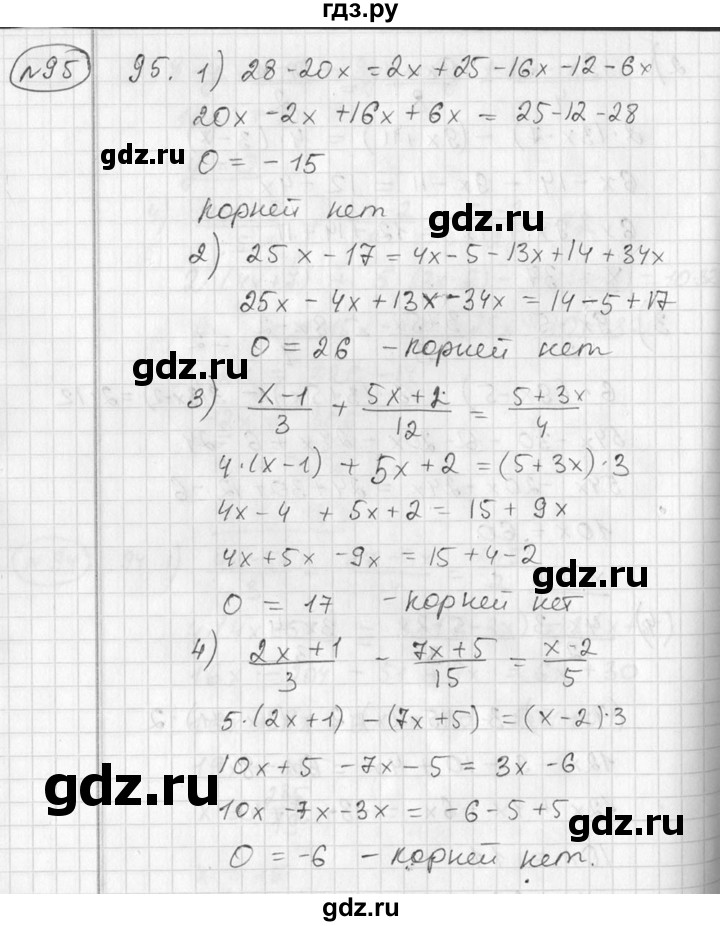 гдз.ру
№95
95. 1) 28 - 20x = 2x + 25 - 16x - 12 - 6x
20x - 2x + 16x + 6x = 25 - 12 - 28
gdz.ru
0 = - 15
корней нет
gdz.ru
2) 25x - 17 = 4x - 5 - 13x + 14 + 34x
25x - 4x + 13x - 34x = 14 - 5 + 17
0 = 26 - корней нет
gdz.ru
3) (x - 1)/3 + (5x + 2)/12 = (5 + 3x)/4
4·(x - 1) + 5x + 2 = (5 + 3x)·3
gdz.ru
4x - 4 + 5x + 2 = 15 + 9x
4x + 5x - 9x = 15 + 4 - 2
gdz.ru
0 = 17 - корней нет
4) (2x + 1)/3 - (7x + 5)/15 = (x - 2)/5
5·(2x + 1) - (7x + 5) = (x - 2)·3
10x + 5 - 7x - 5 = 3x - 6
gdz.ru
10x - 7x - 3x = - 6 - 5 + 5
gdz.ru
0 = -6 - корней нет.
gdz.ru